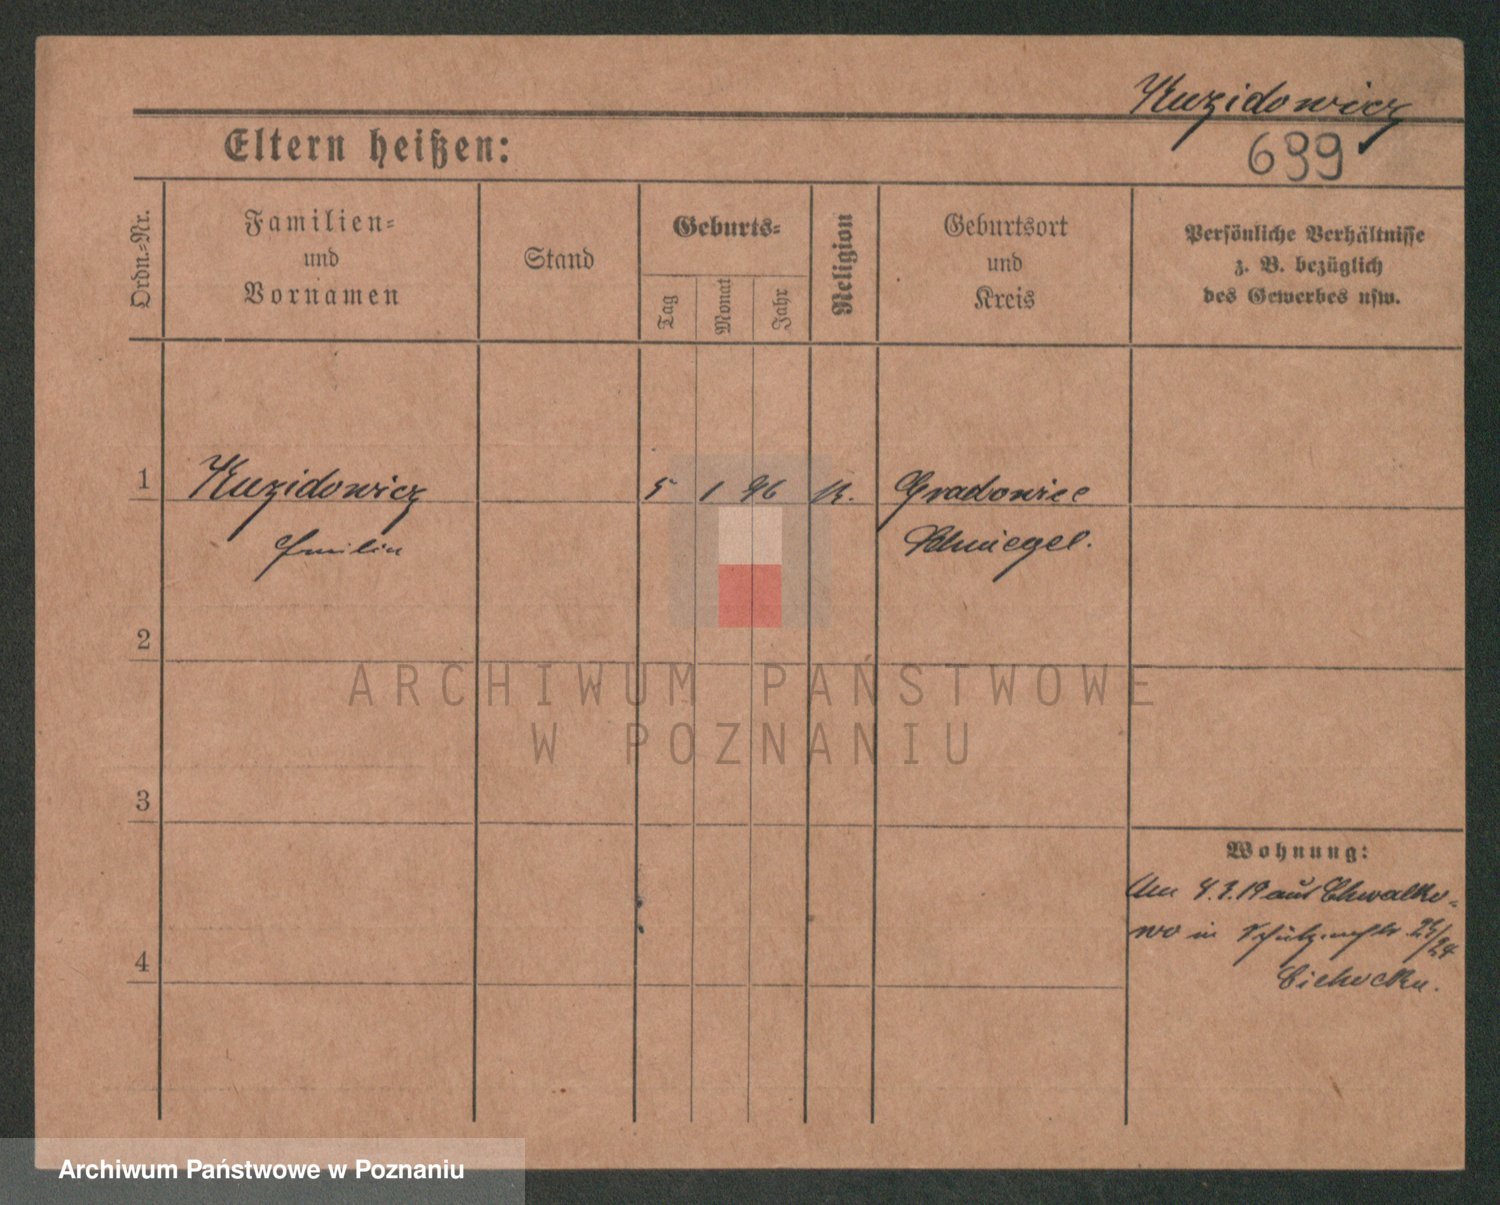 Kuzidowicz
699
Eltern heißen:
Ordn.-Nr.
Familien-
und
Vornamen
Stand
Geburts-
Tag
Monat
Jahr
Religion
Geburtsort
und
Kreis
Persönliche Verhältnisse
z. B. bezüglich
des Gewerbes usw.
1
Kuzidowicz
5 1 96
K.
Gradowice
Emilia
Schmiegel.
2
3
4
Wohnung:
Am 4.3.19 aus Chwalko-
wo in 24/24
Cichocka.
ARCHIWUM PAŃSTWOWE
W POZNANIU
Archiwum Państwowe w Poznaniu